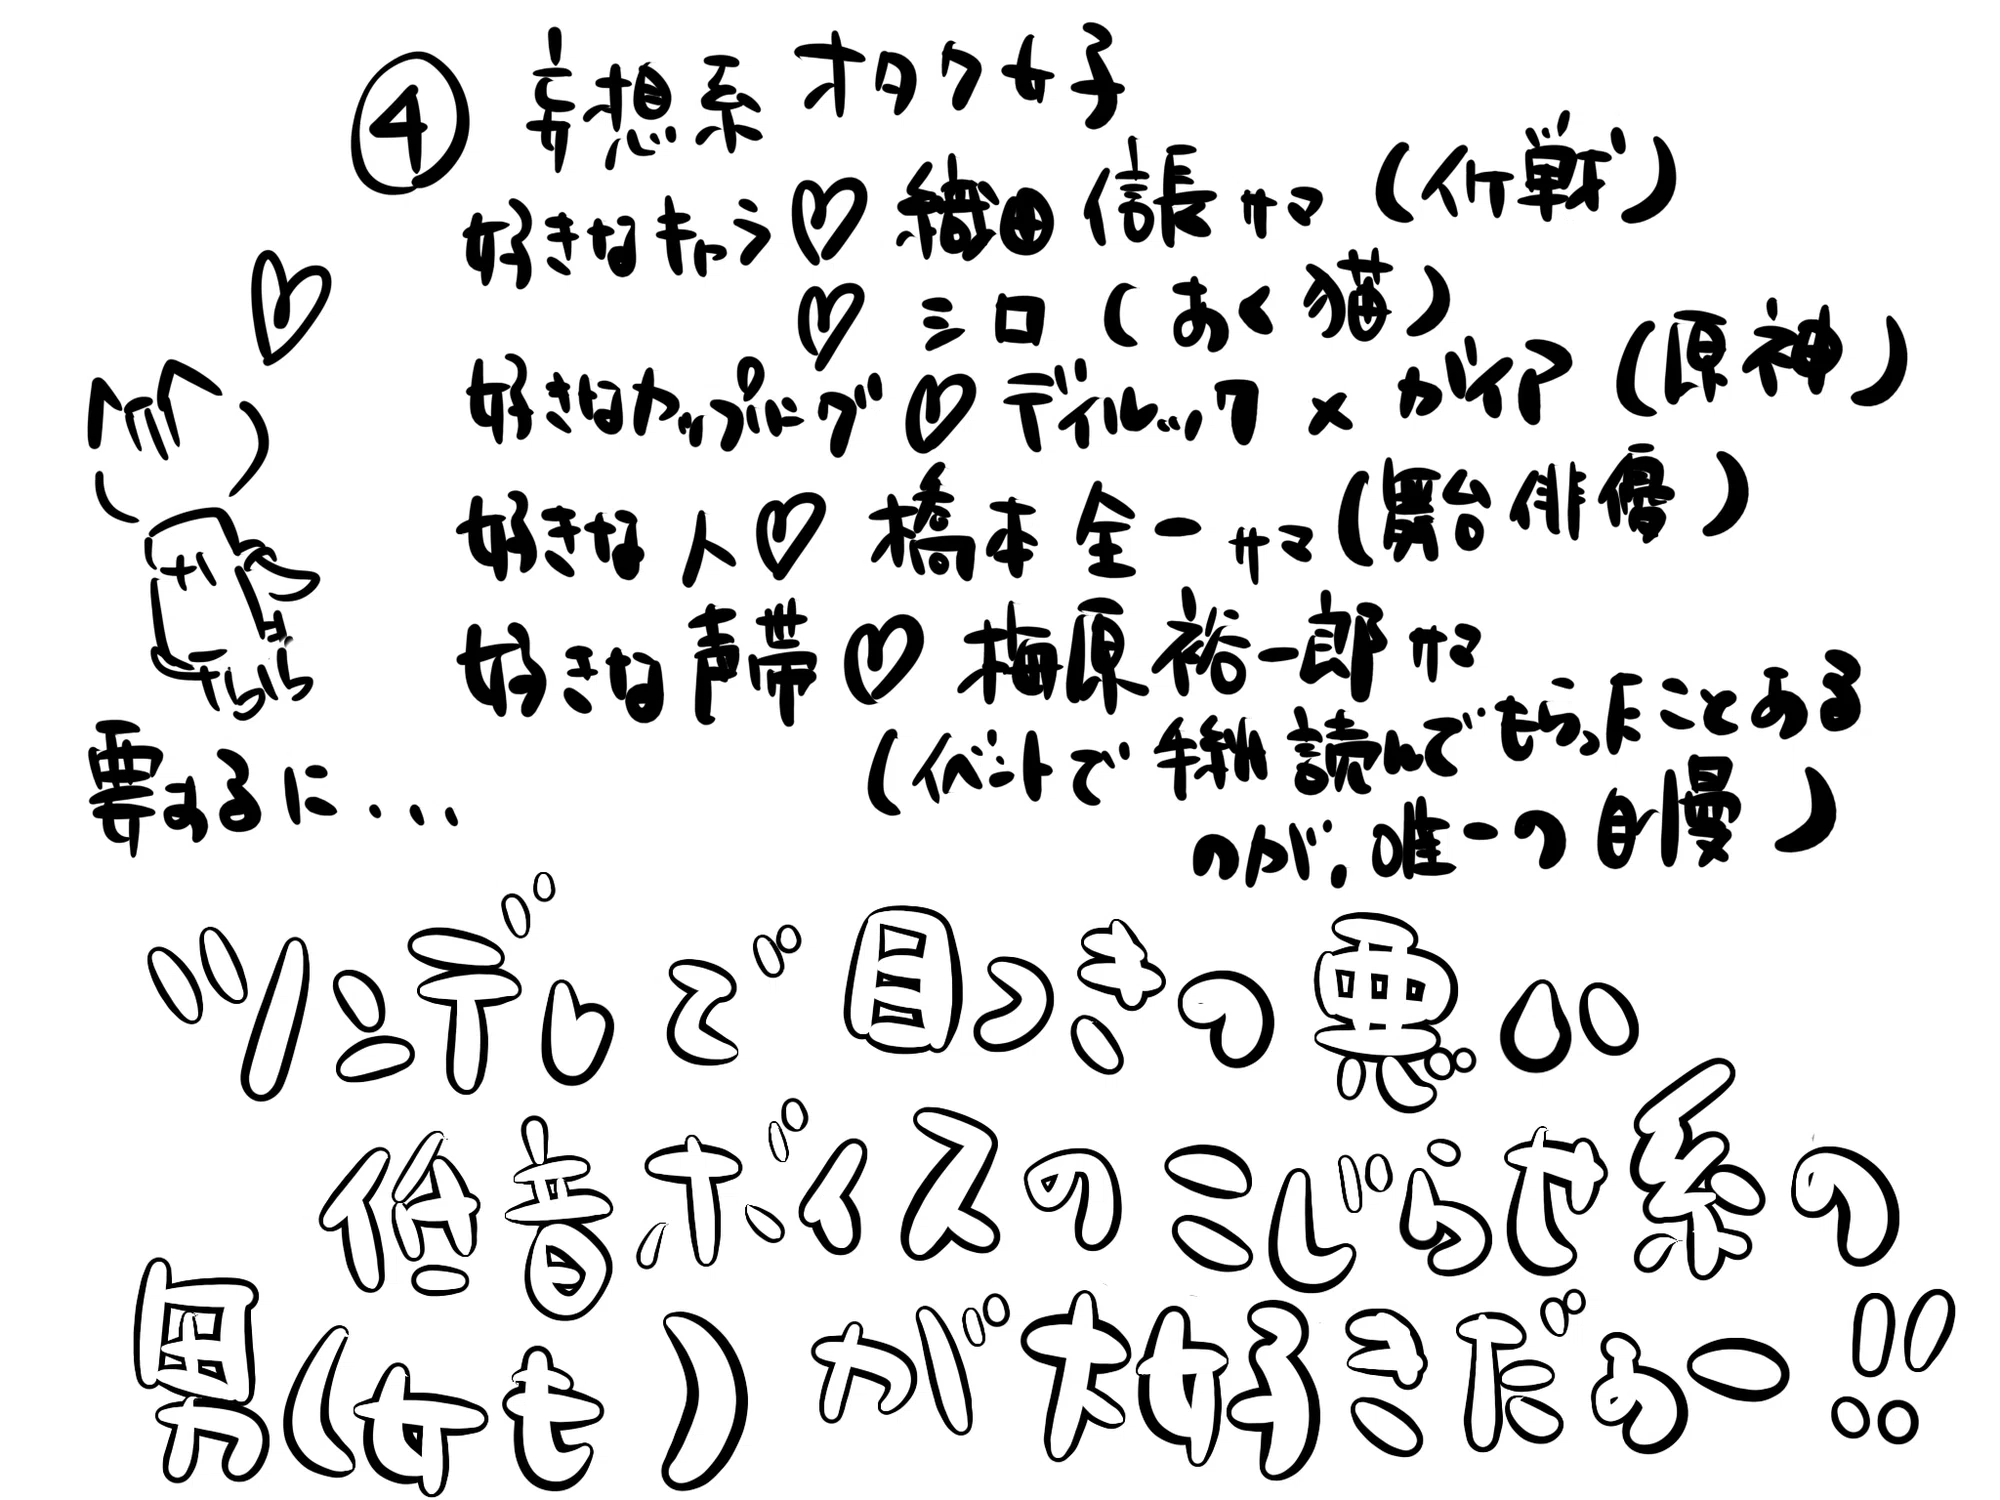 ④ 妄想系 オタク女子
好きなキャラ♡ 織田 信長サマ (イケ戦)
♡ シロ (あく猫)
好きなカップリング♡ ディルック × ガイア (原神)
好きな人♡ 橋本 全一サマ (舞台俳優)
好きな声帯♡ 梅原 裕一郎サマ
(イベントで 手紙 読んで もらったことある
のが、唯一の 自慢)
要するに...
ツンデレで 目つきの 悪い
低音ボイスの こじらせ系の
男(女も)が大好きだぁー!!